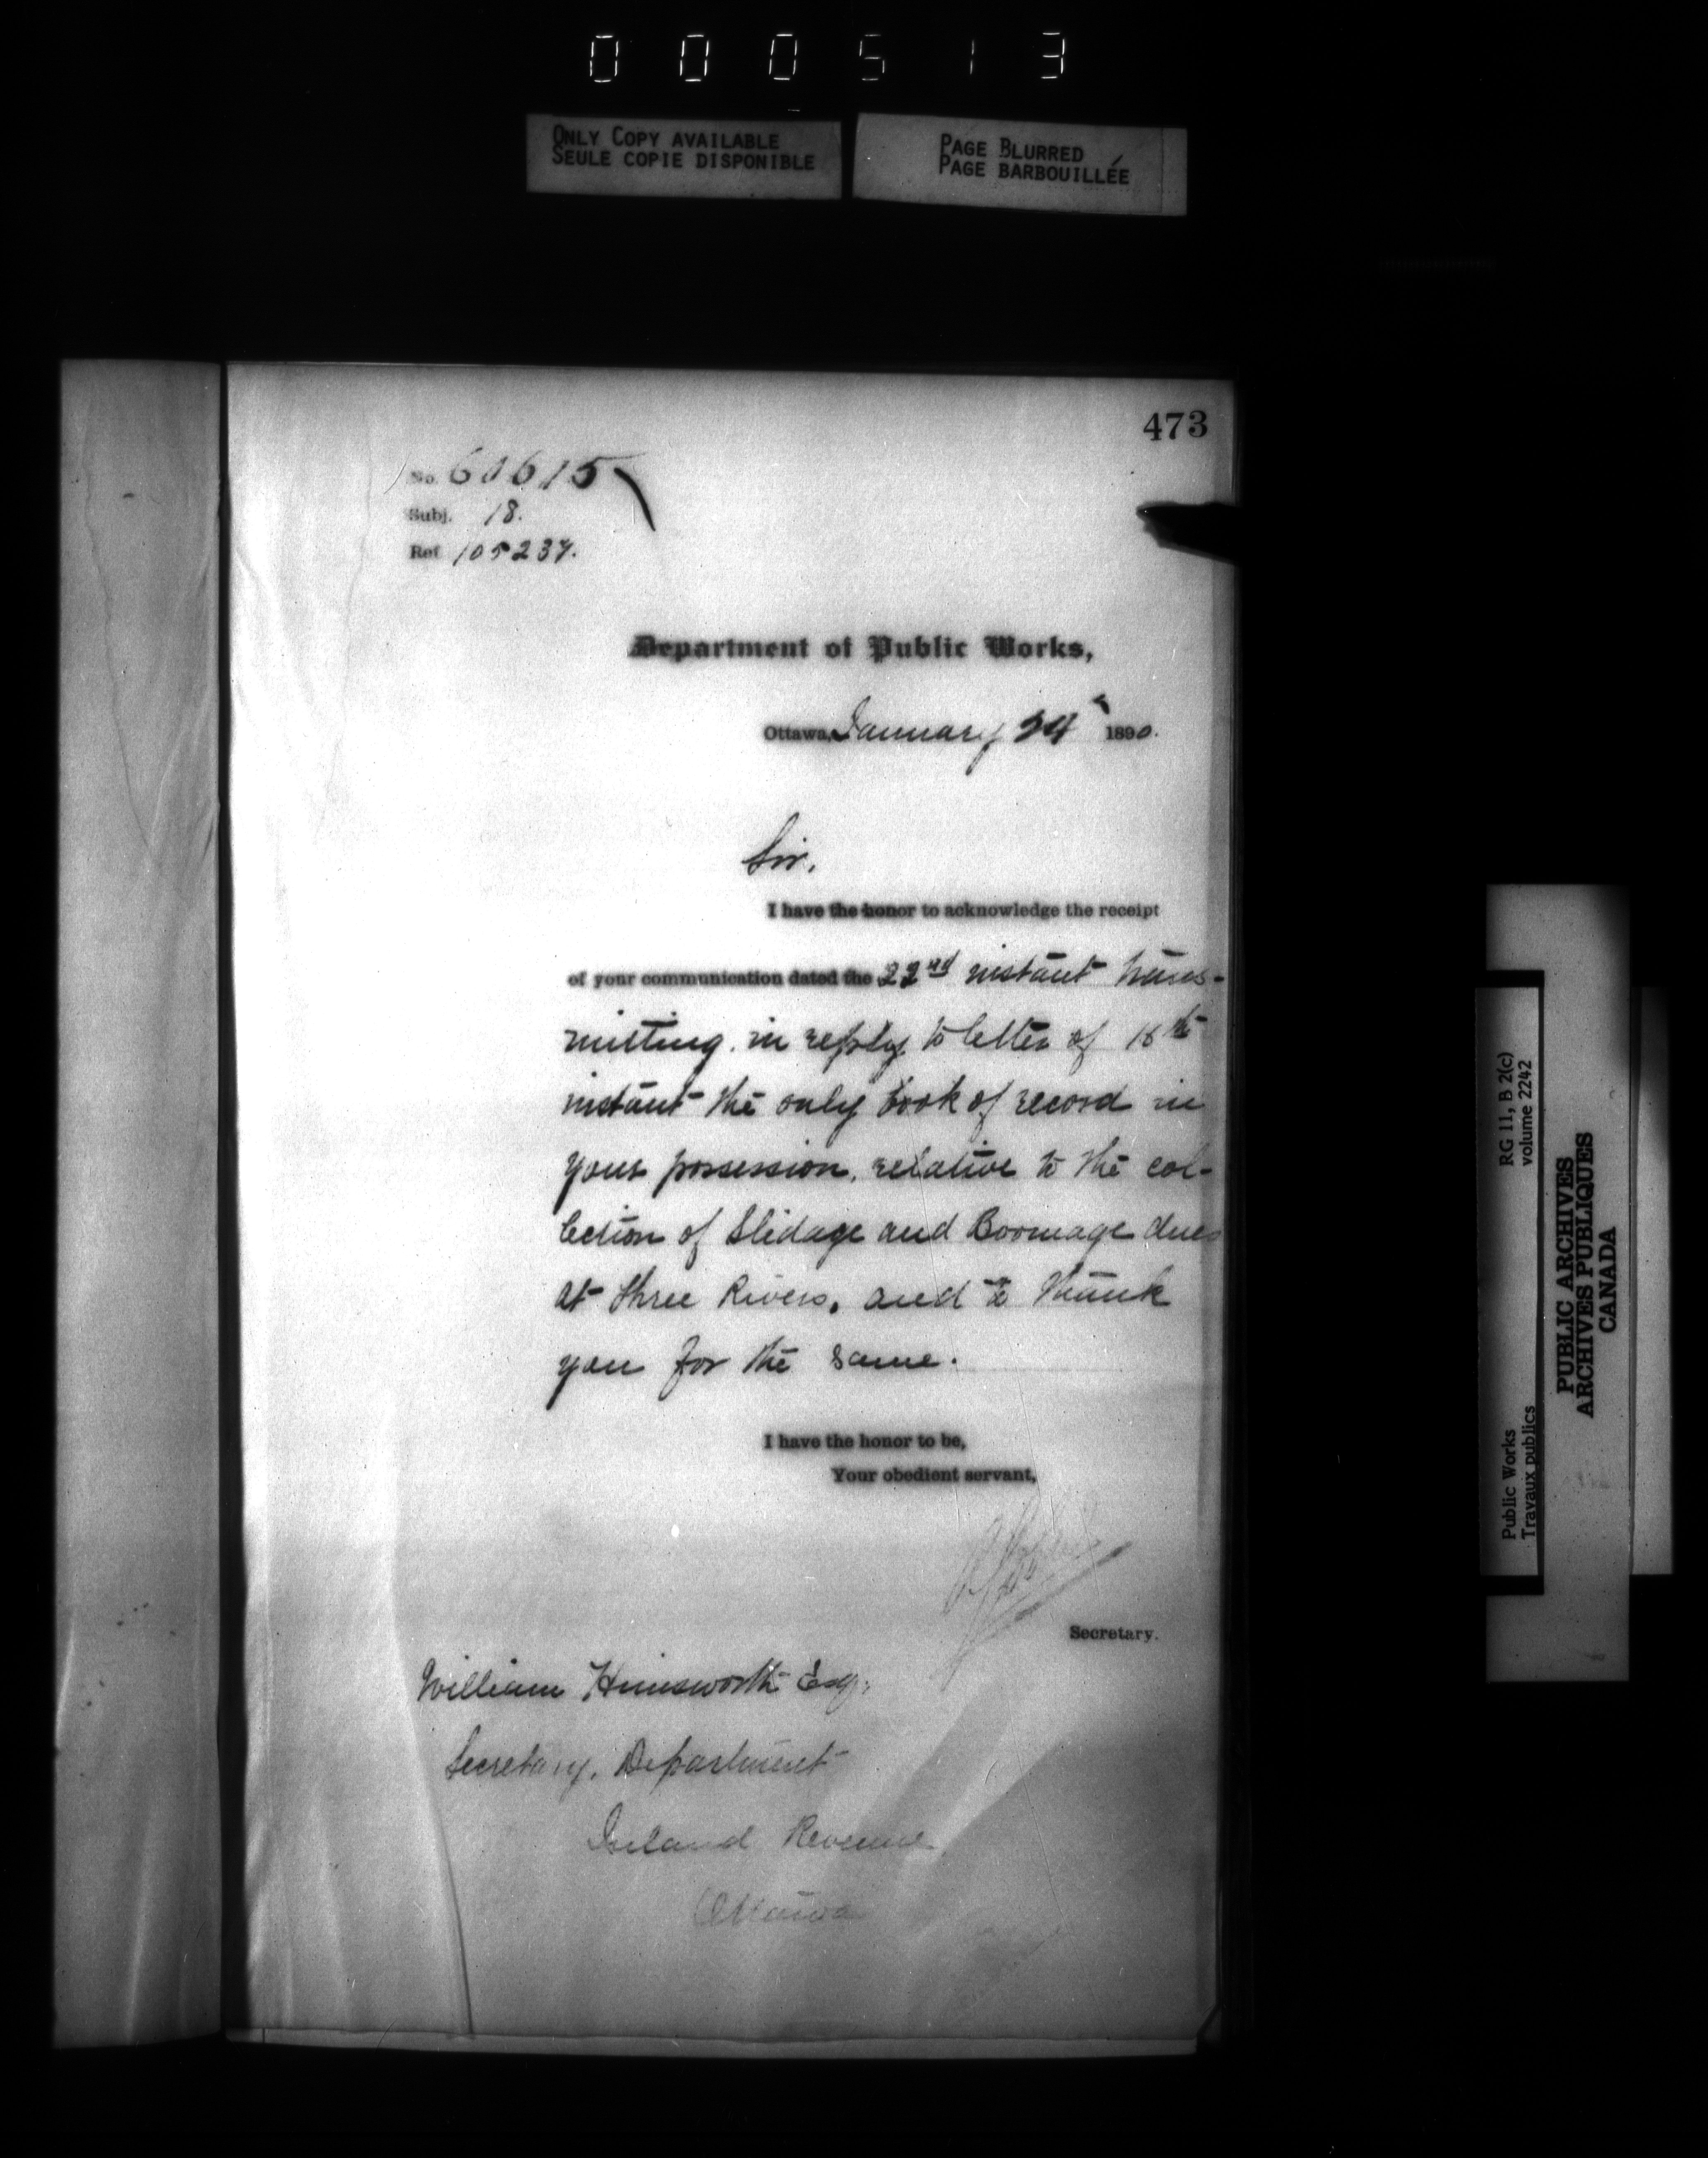 000513
ONLY COPY AVAILABLE
SEULE COPIE DISPONIBLE
PAGE BLURRED
PAGE BARBOUILLÉE
473
No. 60615
Subj. 18.
Ref 105237.
Department of Public Works,
Ottawa, January 24 1890.
Sir,
I have the honor to acknowledge the receipt
of your communication dated the 22nd instant trans-
mitting in reply to letter of 18th
instant the only book of record in
your possession, relative to the col-
lection of Slidage and Boomage dues
at Three Rivers, and to thank
you for the same.
I have the honor to be,
Your obedient servant,
Secretary.
William Himsworth Esq.,
Secretary, Department
Inland Revenue
Ottawa
RG 11, B 2(c)
volume 2242
Public Works
Travaux publics
PUBLIC ARCHIVES
ARCHIVES PUBLIQUES
CANADA